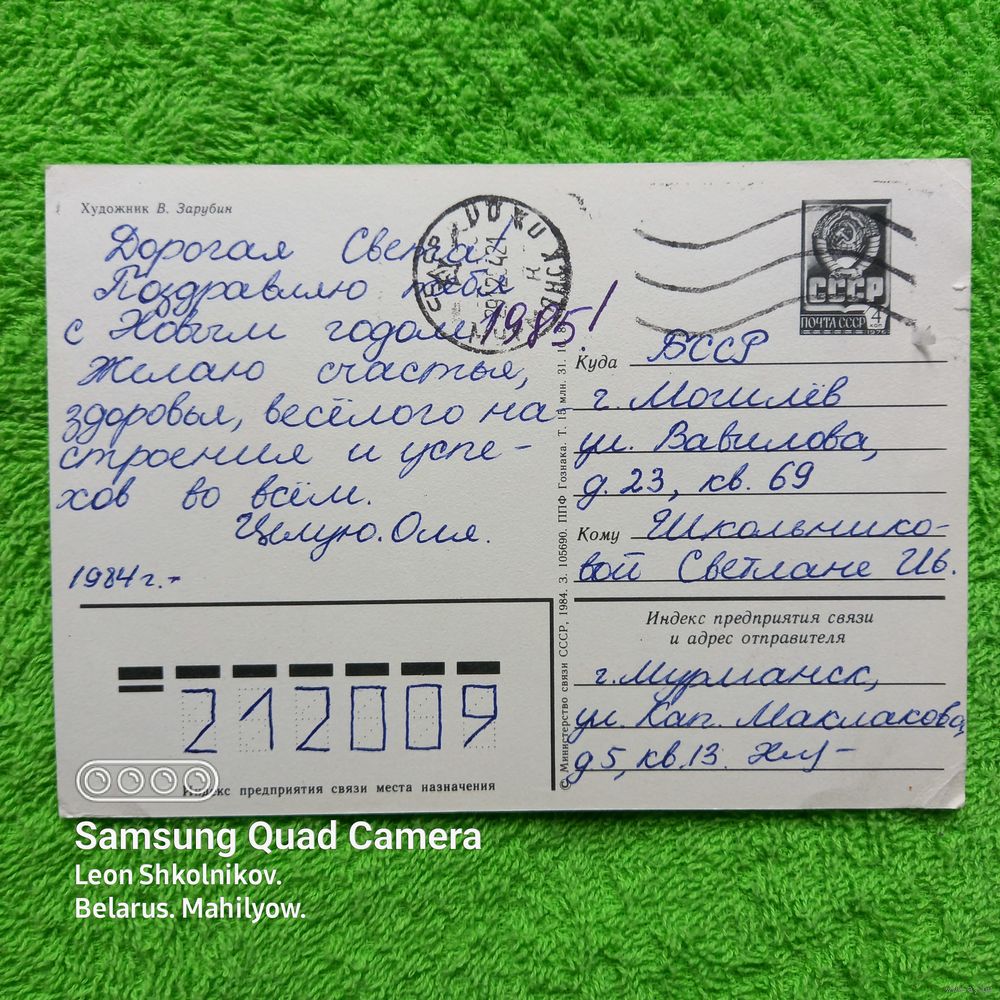 Художник В. Зарубин
Дорогая Света!
Поздравляю тебя
с Новым годом 1985!
Желаю счастья,
здоровья, весёлого на
строения и успе-
хов во всём.
Целую. Оля.
1984 г.-
ПОЧТА СССР
4 коп
1976
Куда БССР
г. Могилёв
ул. Вавилова,
д. 23, кв. 69
Кому Школьнико-
вой Светлане Ив.
Индекс предприятия связи
и адрес отправителя
г. Мурманск,
ул. Кап. Маклакова,
д 5, кв. 13.
© Министерство связи СССР, 1984. З. 105690. ППФ Гознака.
212009
Индекс предприятия связи места назначения
Samsung Quad Camera
Leon Shkolnikov.
Belarus. Mahilyow.